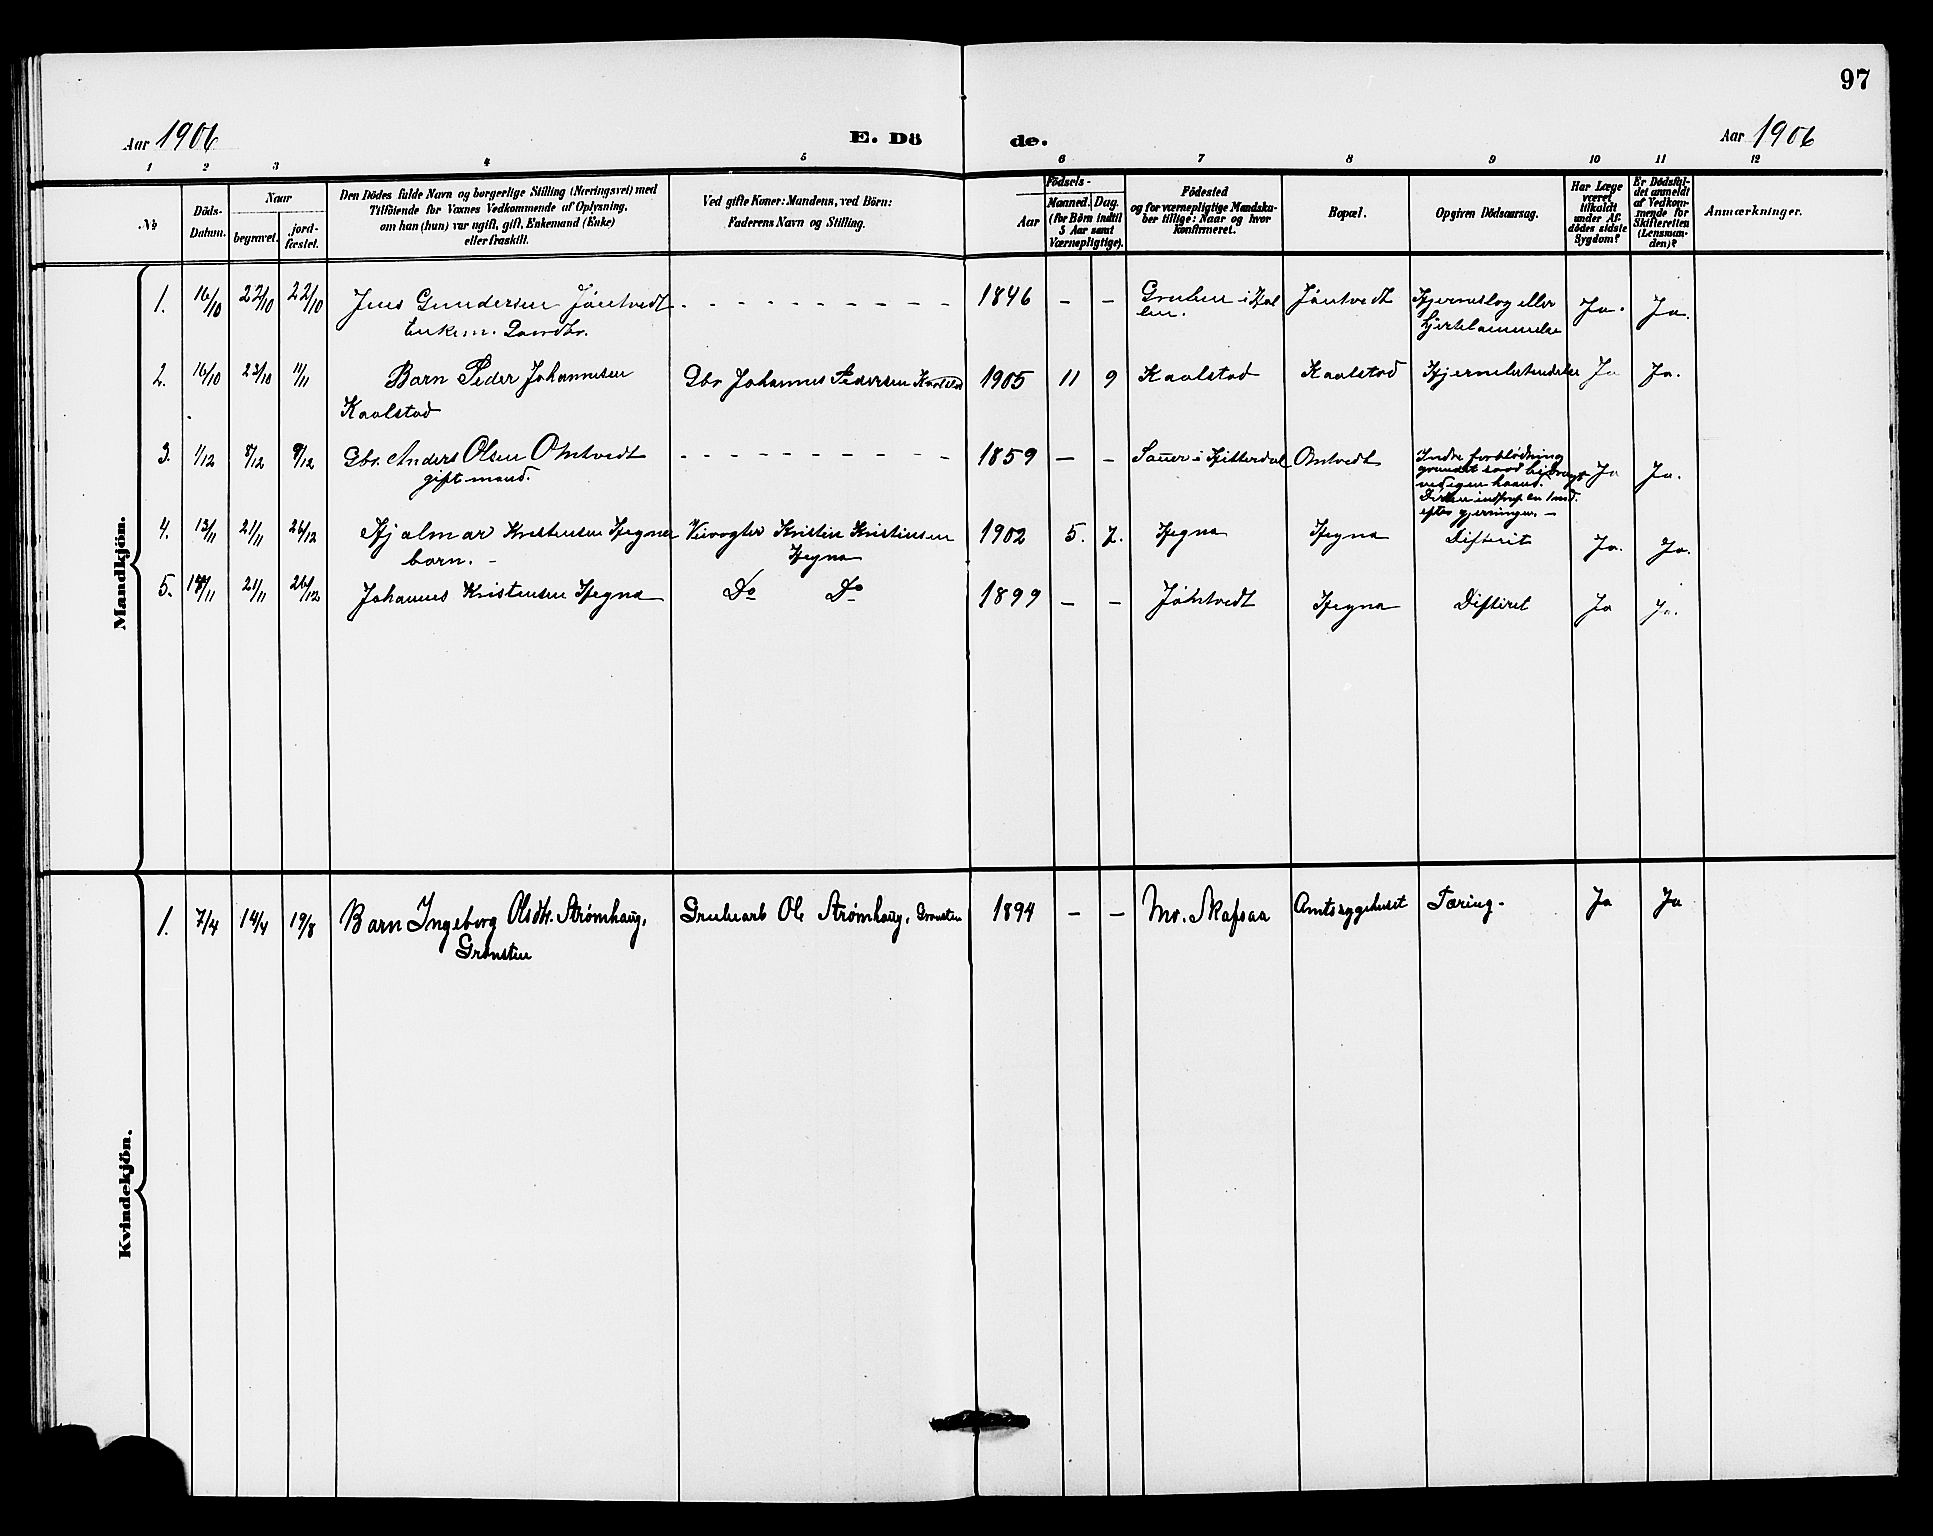 97
Aar 1906 E. Dö de. Aar 1906
1 2 3 4 5 6 7 8 9 10 11 12
№
Döds-Datum.
Naar
begravet.
jord-fæstet.
Den Dödes fulde Navn og borgerlige Stilling (Næringsvei) med
Tilföiende for Voxnes Vedkommende af Oplysning,
om han (hun) var ugift, gift, Enkemand (Enke)
eller fraskilt.
Ved gifte Koner: Mandens, ved Börn:
Faderens Navn og Stilling.
Födsels-
Aar
Maaned.
Dag.
(for Börn indtil
5 Aar samt
Værnepligtige).
Födested
og for værnepligtige Mandska-
ber tillige: Naar og hvor
konfirmeret.
Bopæl.
Opgiven Dödsaarsag.
Har Læge
været
tilkaldt
under Af-
dödes sidste
Sygdom?
Er Dödsfal-
det anmeldt
af Vedkom-
mende for
Skifteretten
(Lensman-
den)?
Anmærkninger.
Mandkjön.
1. 16/10 22/10 22/10 Jens Gundersen Jöntvedt - - - - - - - - - - 1846 - - Gruben i Hol Jöntvedt Hjerneslag eller Ja. Ja.
Enkem. Gaardbr. len. hjertelammelse
2. 16/10 23/10 11/11 Barn Peder Johannesen Gbr Johannes Pedersen Kaalstad 1905 11 9 Kaalstad Kaalstad Hjernebetændelse Ja Ja.
Kaalstad
3. 1/12 8/12 8/12 Gbr. Anders Olsen Omtvedt - - - - - - - - - - 1859 - - Sauer i Hitterdal Omtvedt Indre forblødning Ja Ja.
gift mand. grundet
ved egen haand.
Døden indtraf en
efter gjerningen. -
4. 13/11 21/11 26/12 Hjalmar Kristensen Hegna Veivogter Kristen Kristensen 1902 5. 7. Hegna Hegna Difterit Ja. Ja.
barn. - Hegna
5. 21/11 26/12 Johannes Kristensen Hegna Do Do 1899 - - Jöntvedt Hegna Difterit Ja Ja.
Kvindekjön.
1. 7/4 14/4 19/8 Barn Ingeborg Olsdtr. Strømhaug, Grubearb Ole Strømhaug, Gronsten 1894 - - Mo. Skafsaa Amtssygehuset Tæring. Ja Ja
Gronsten